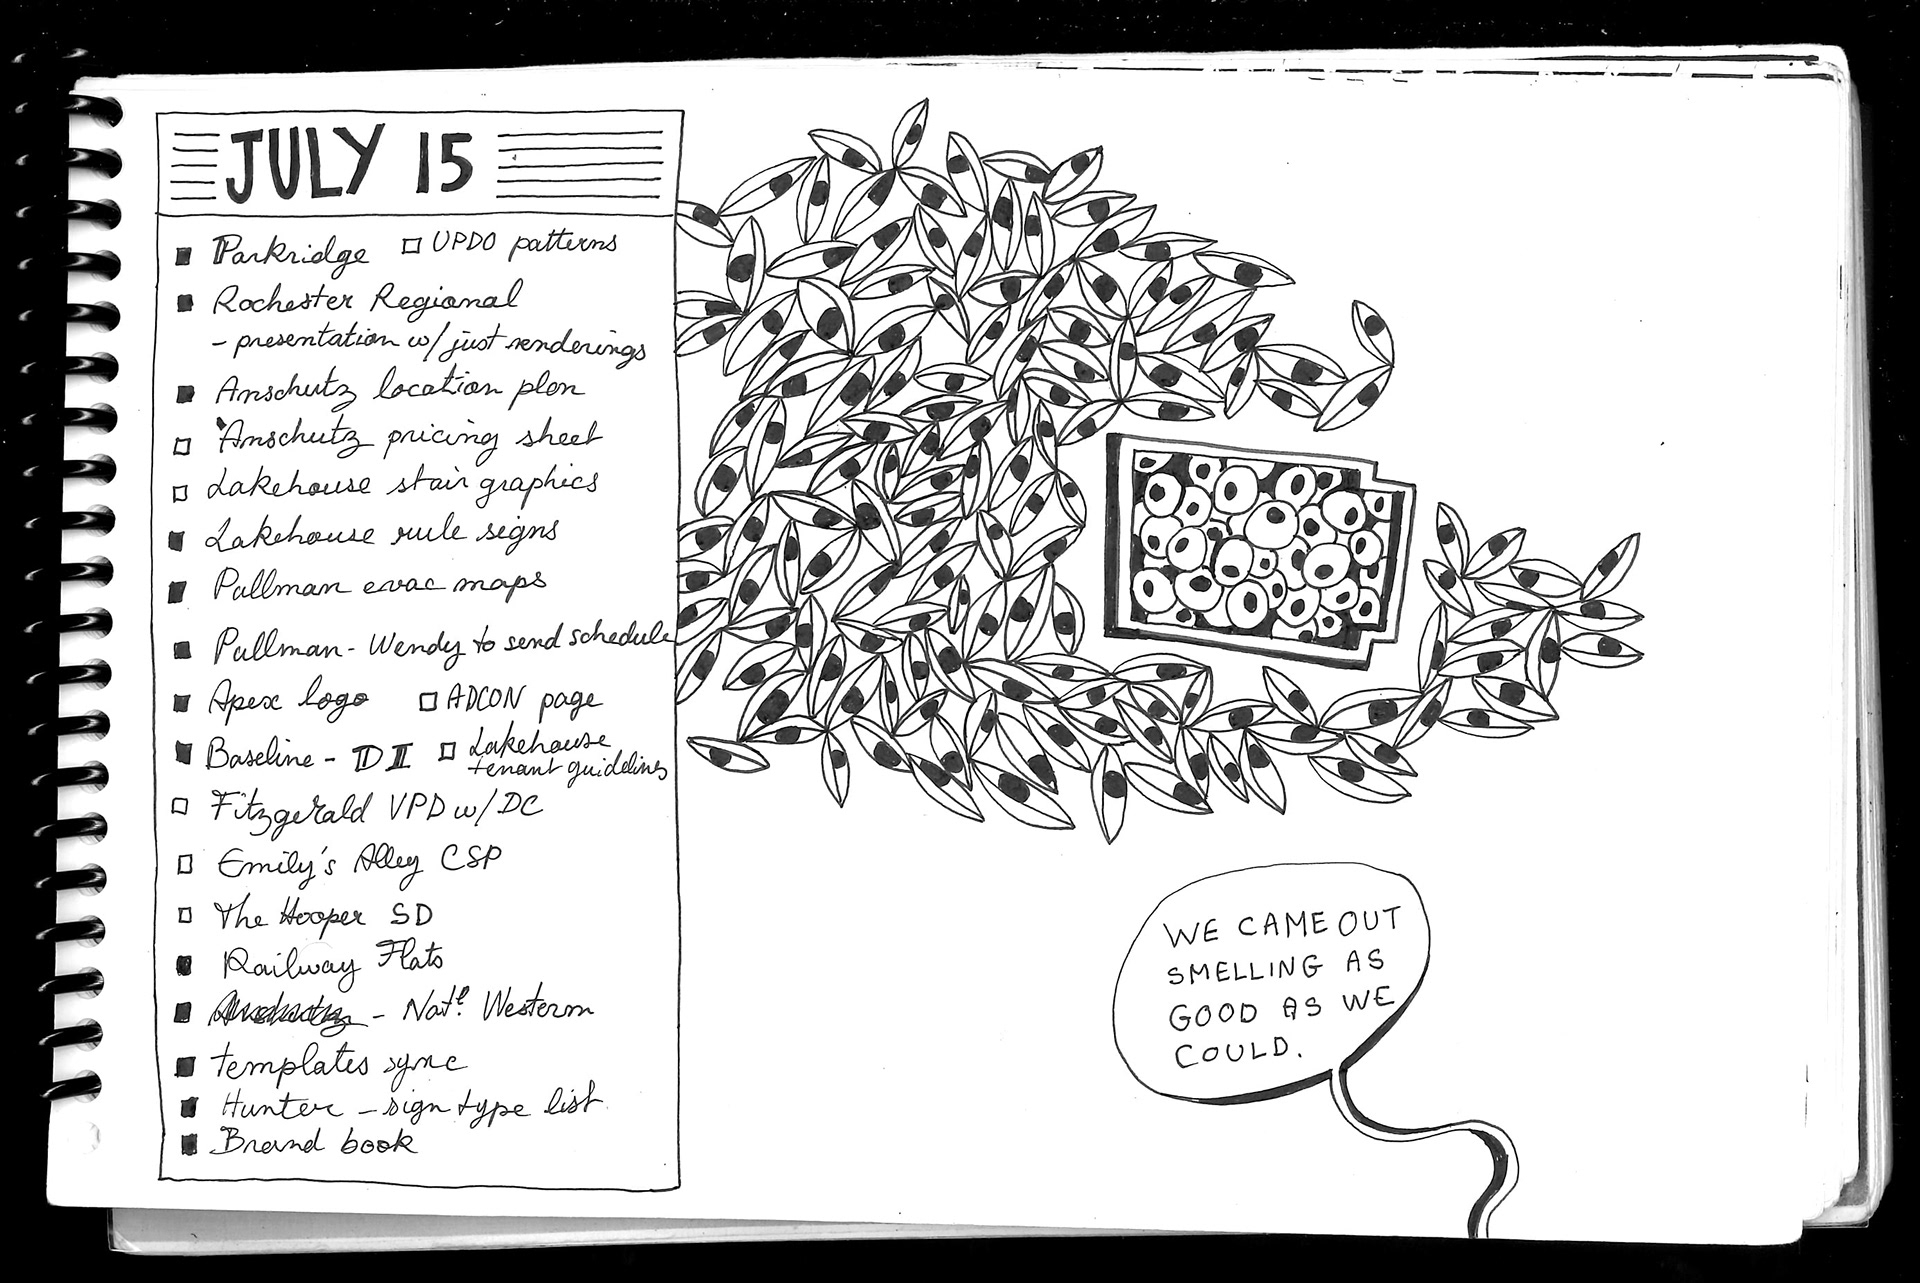 JULY 15
Parkridge UPDO patterns
Rochester Regional
- presentation w/ just renderings
Anschutz location plan
Anschutz pricing sheet
Lakehouse stair graphics
Lakehouse rule signs
Pullman evac maps
Pullman - Wendy to send schedule
Apex logo ADCON page
Baseline - DI Lakehouse
tenant guidelines
Fitzgerald VPD w/ DC
Emily's Alley CSP
The Hooper SD
Railway Flats
- Nat'l Western
templates sync
Hunter - sign type list
Brand book
WE CAME OUT
SMELLING AS
GOOD AS WE
COULD.